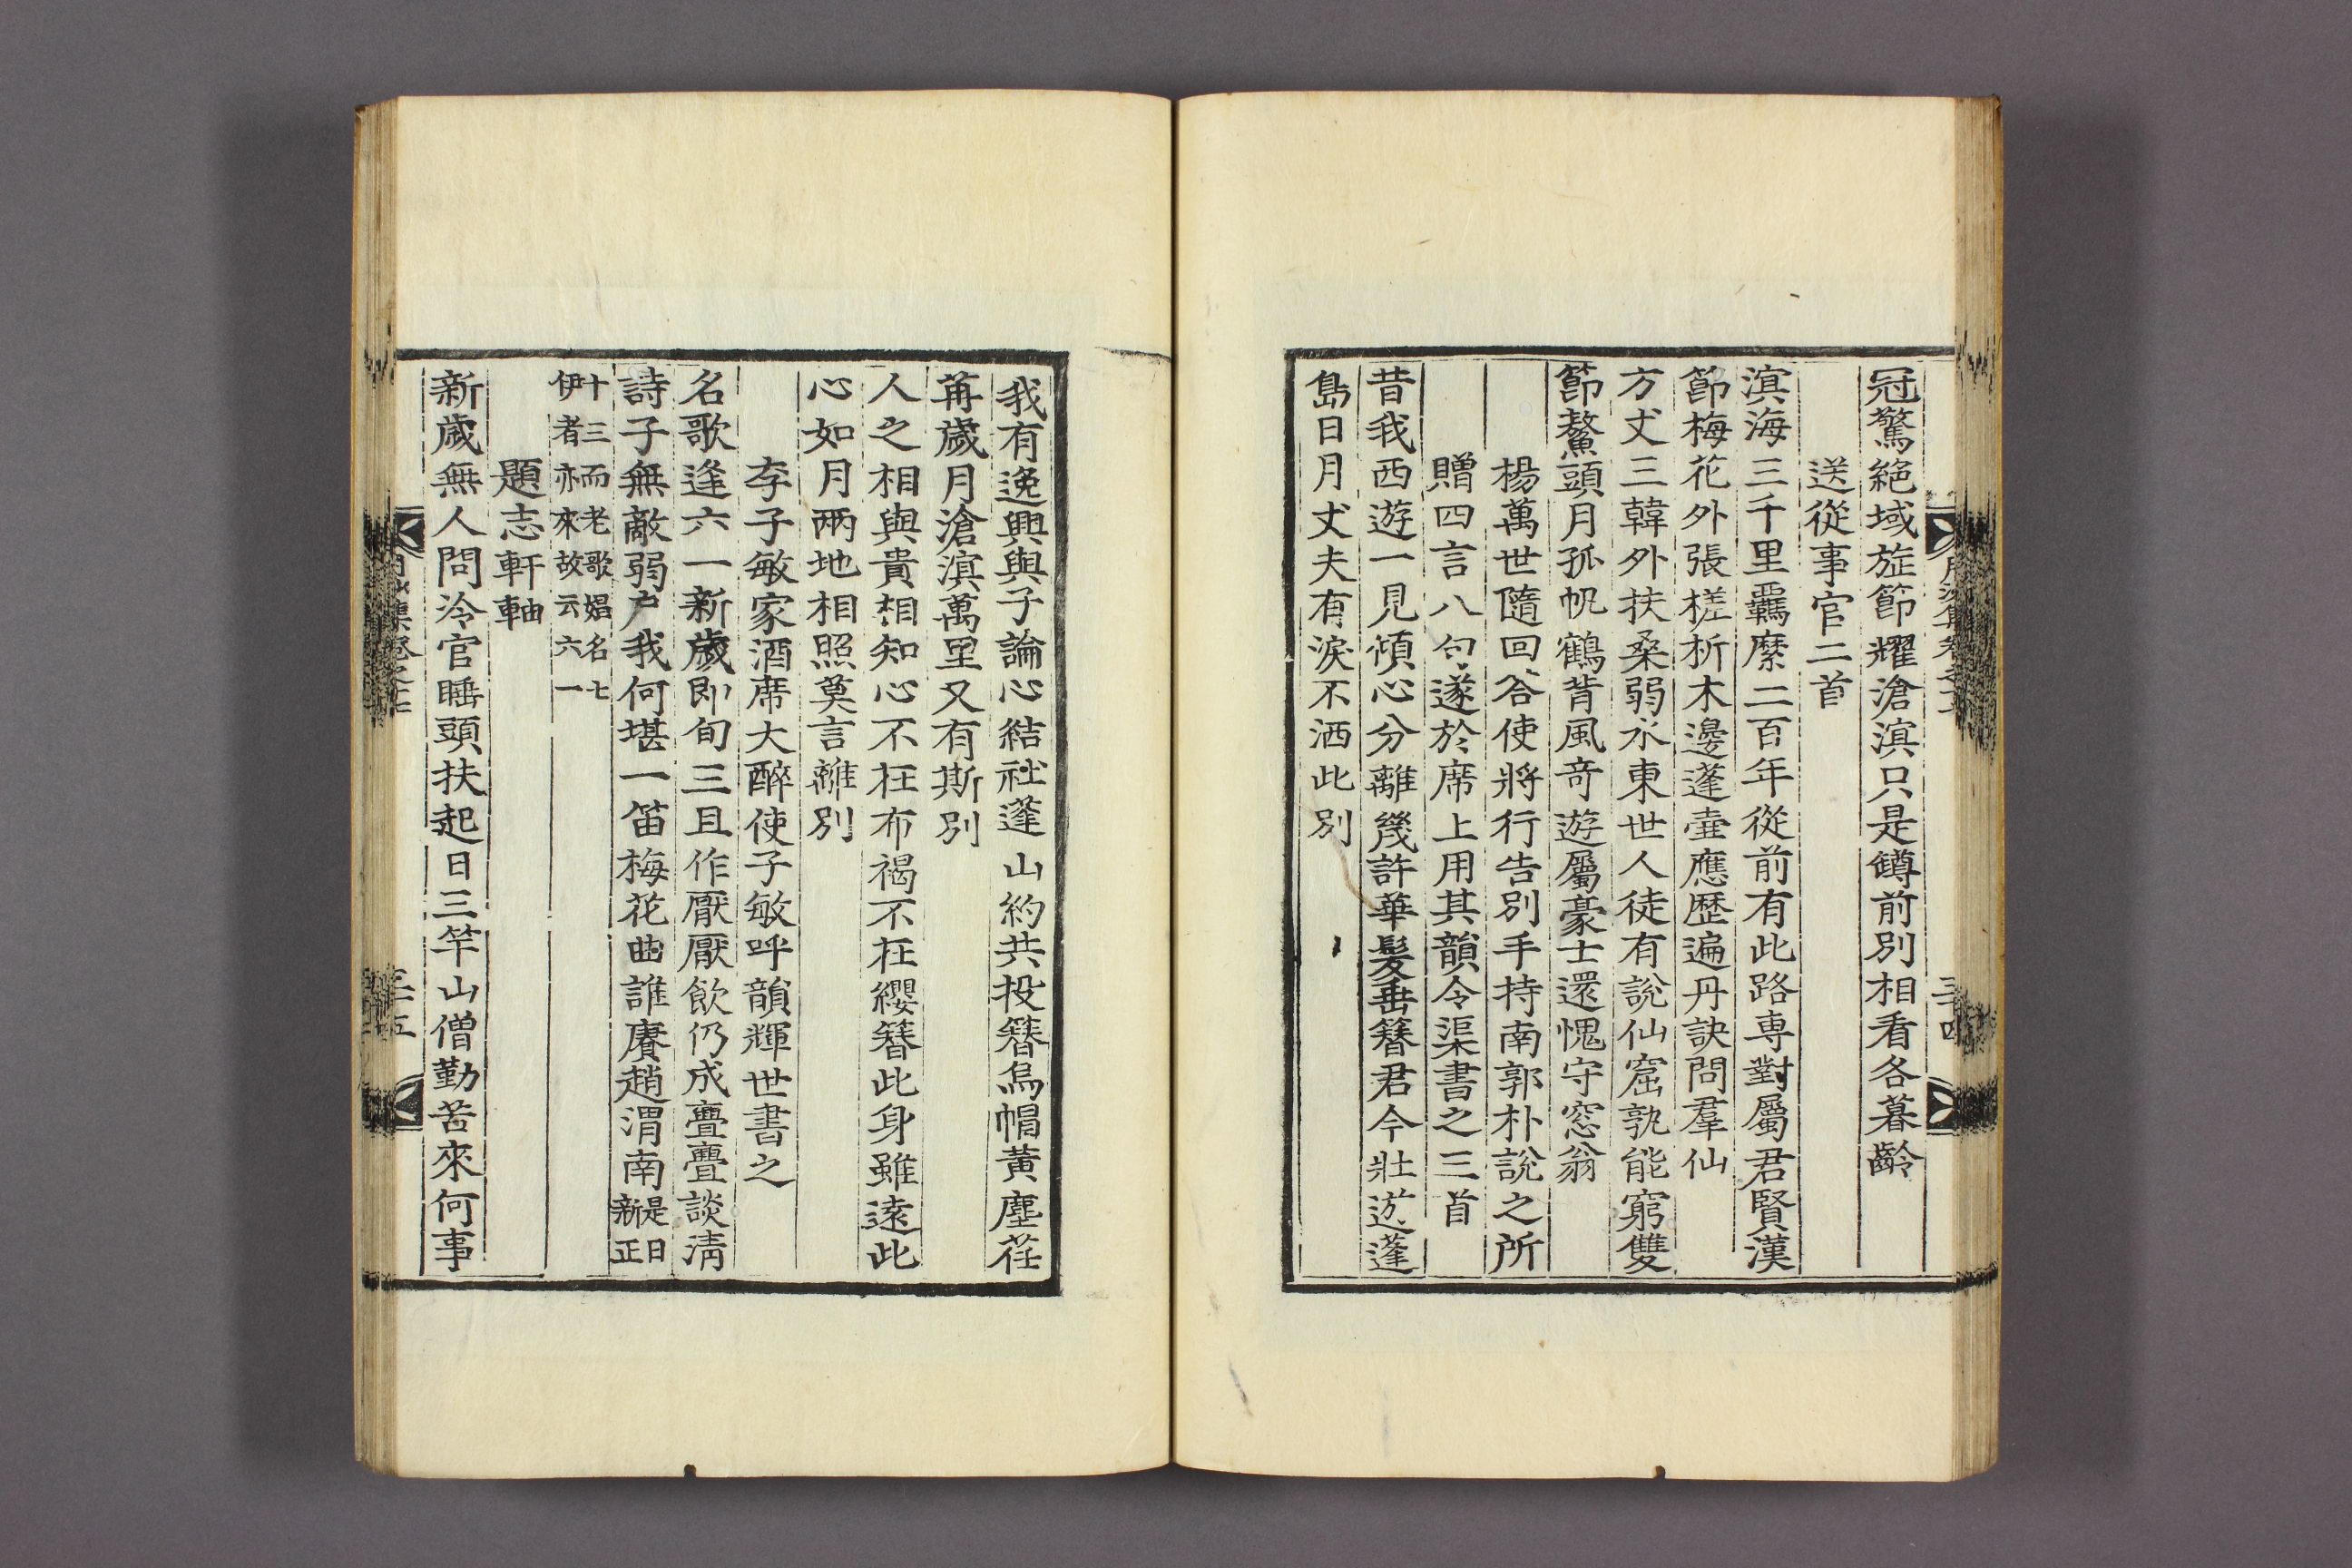 冠驚絕域旌節耀滄溟只是罇前別相看各暮齡
送從事官二首
溟海三千里羈縻二百年從前有此路專對屬君賢漢
節梅花外張槎析木邊蓬壺應歷遍丹訣問羣仙
方丈三韓外扶桑弱水東世人徒有說仙窟孰能窮雙
節鰲頭月孤帆鶴背風奇遊屬豪士還愧守窓翁
楊萬世隨回答使將行告別手持南郭朴說之所
贈四言八句遂於席上用其韻令渠書之三首
昔我西遊一見傾心分離幾許華髮垂簪君今壯遊蓬
島日月丈夫有淚不洒此別
三十四
我有逸興與子論心結社蓬山約共投簪烏帽黃塵荏
苒歲月滄溟萬里又有斯別
人之相與貴相知心不在布褐不在纓簪此身雖遠此
心如月兩地相照莫言離別
李子敏家酒席大醉使子敏呼韻輝世書之
名歌逢六一新歲卽旬三且作厭厭飮仍成亹亹談淸
詩子無敵弱户我何堪一笛梅花曲誰賡趙渭南是日新正
十三而老歌娼名七
伊者亦來故云六一
題志軒軸
新歲無人問冷官睡頭扶起日三竿山僧勤苦來何事
集卷之七
三十五